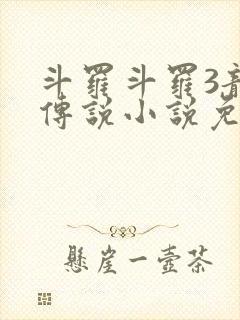 斗羅斗羅3
傳說小說免
懸崖一壺茶